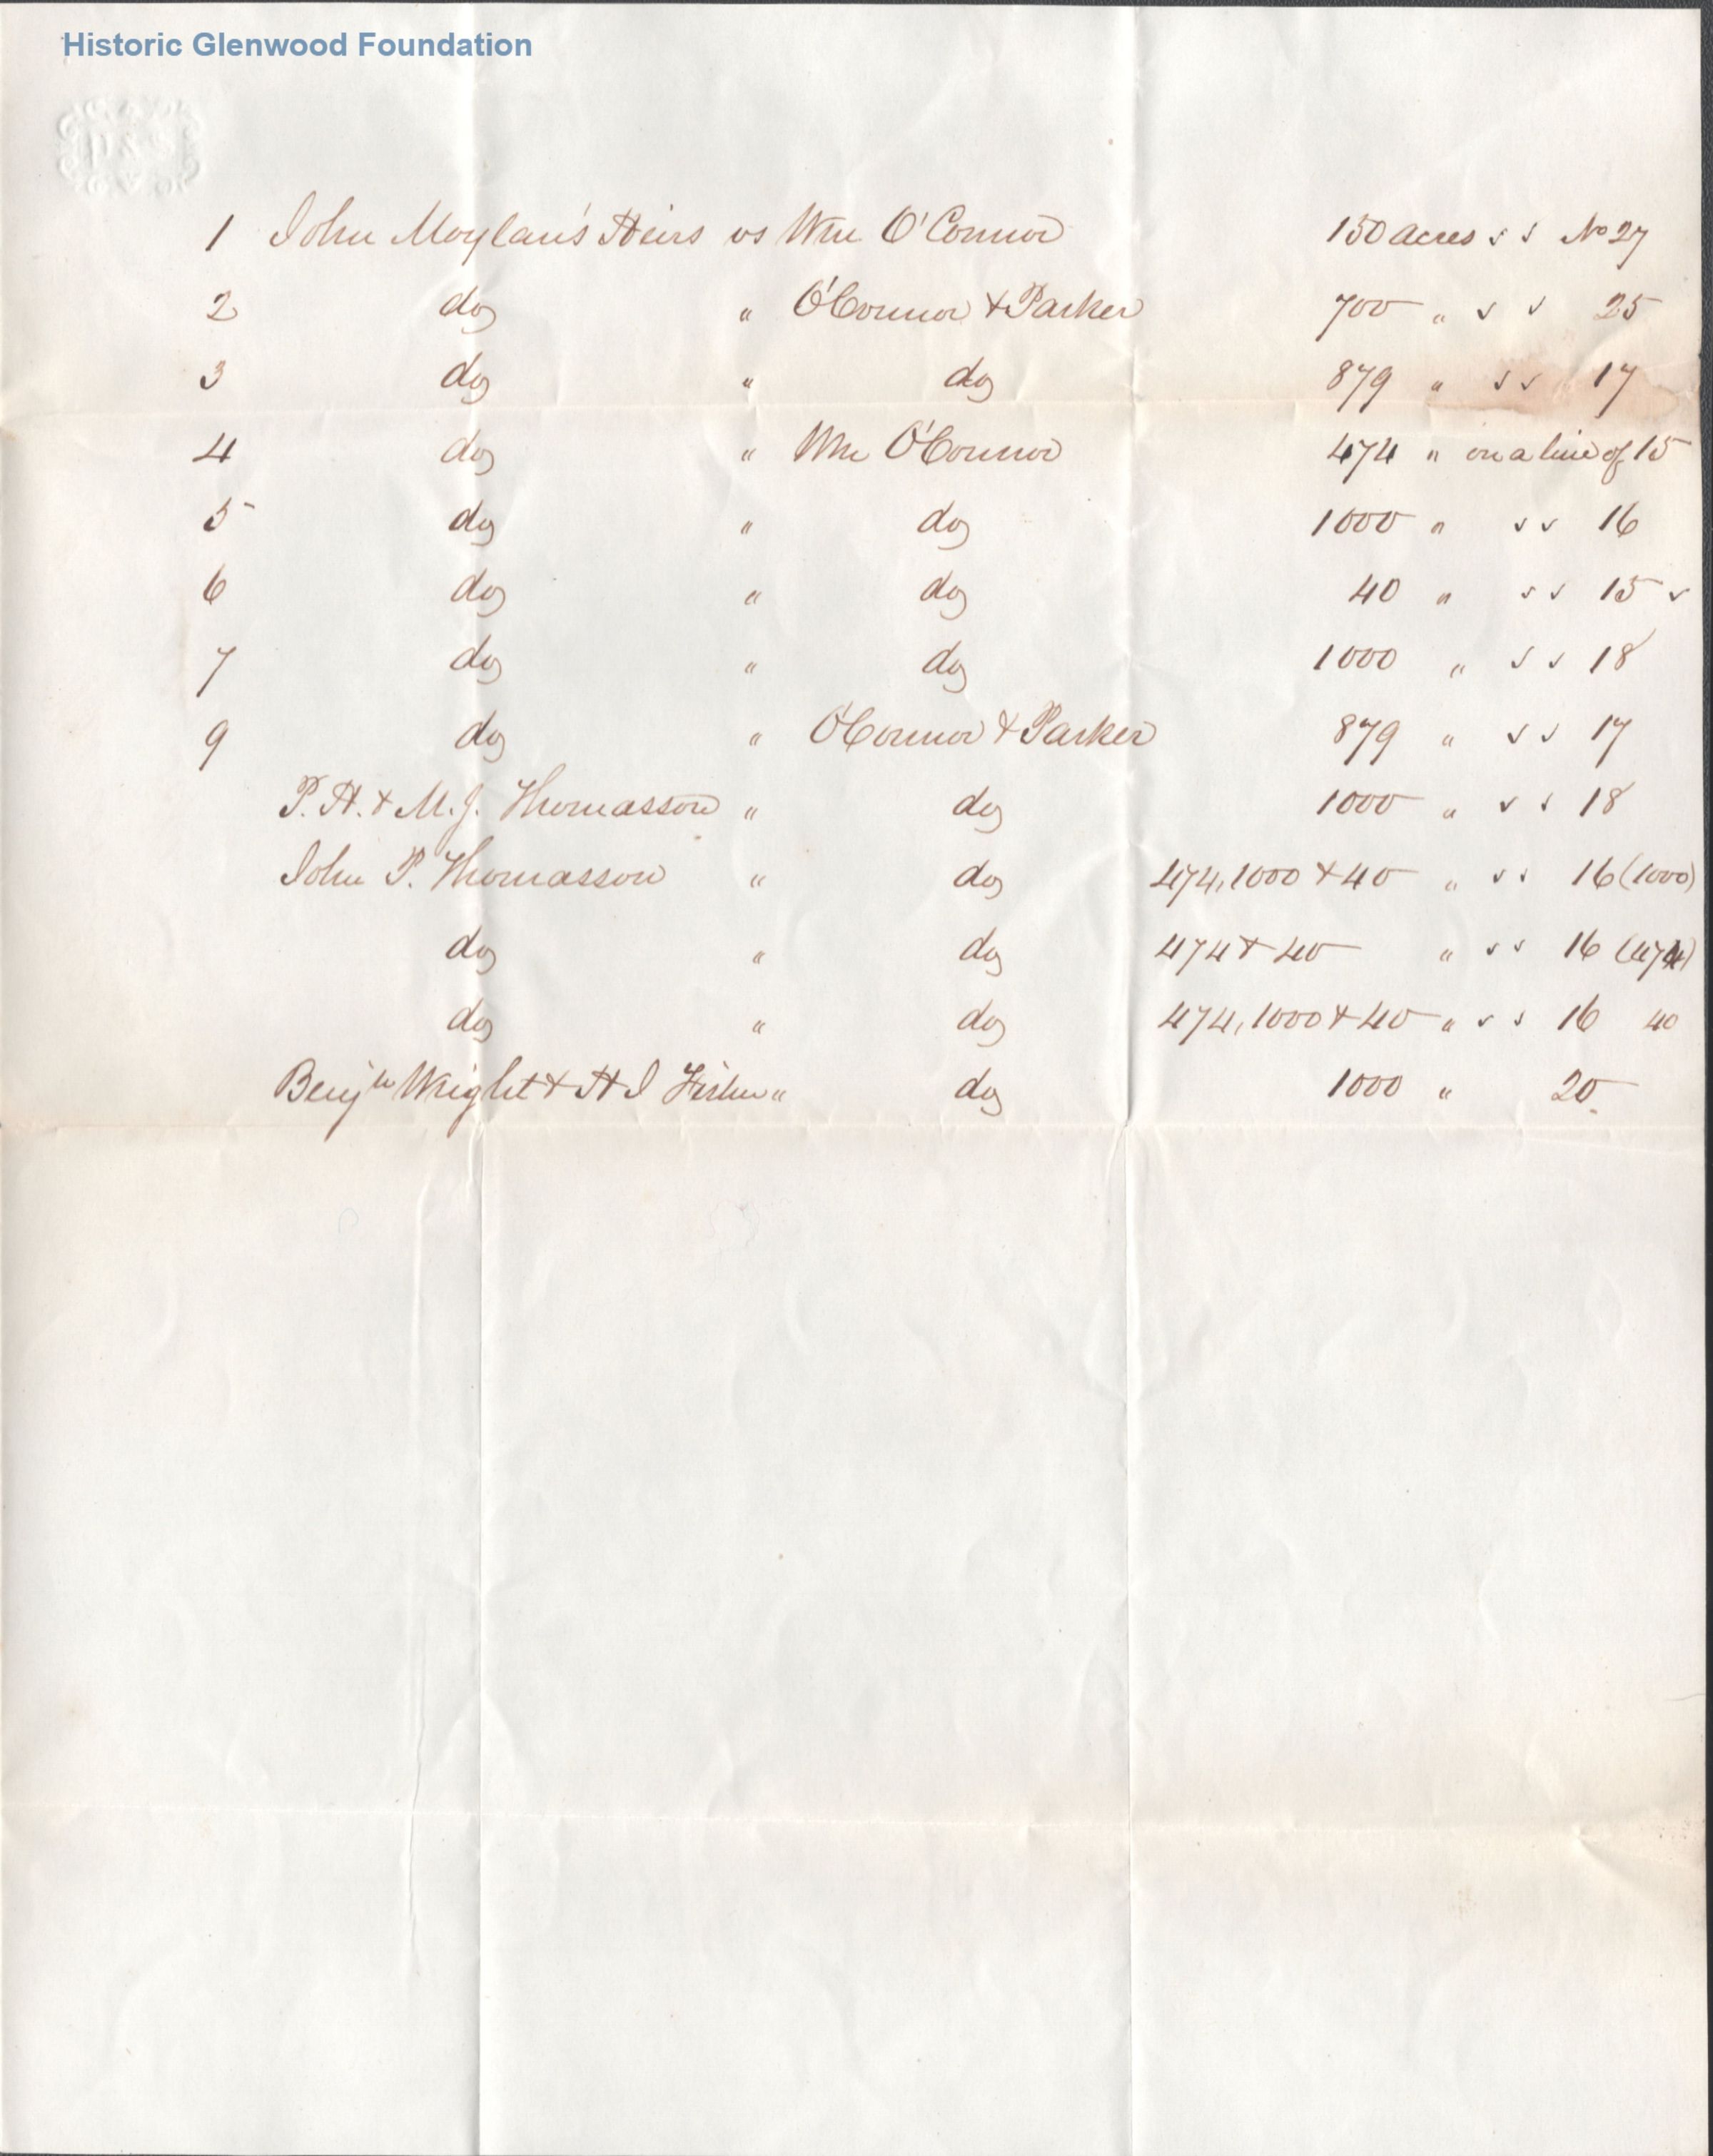 Historic Glenwood Foundation
P & S
1 John Moylan's Heirs vs Wm O'Connor 150 acres ✓ ✓ No 27
2 do " O'Connor & Parker 700 " ✓ ✓ 25
3 do " do 879 " ✓ ✓ 17
4 do " Wm O'Connor 474 " on a line of 15
5 do " do 1000 " ✓ ✓ 16
6 do " do 40 " ✓ ✓ 15 ✓
7 do " do 1000 " ✓ ✓ 18
9 do " O'Connor & Parker 879 " ✓ ✓ 17
P. H. & M. J. Thomasson " do 1000 " ✓ ✓ 18
John P. Thomasson " do 474, 1000 & 40 " ✓ ✓ 16 (1000)
do " do 474 & 40 " ✓ ✓ 16 (474)
do " do 474, 1000 & 40 " ✓ ✓ 16 40
Benjn Wright & H I Fisher " do 1000 " 20